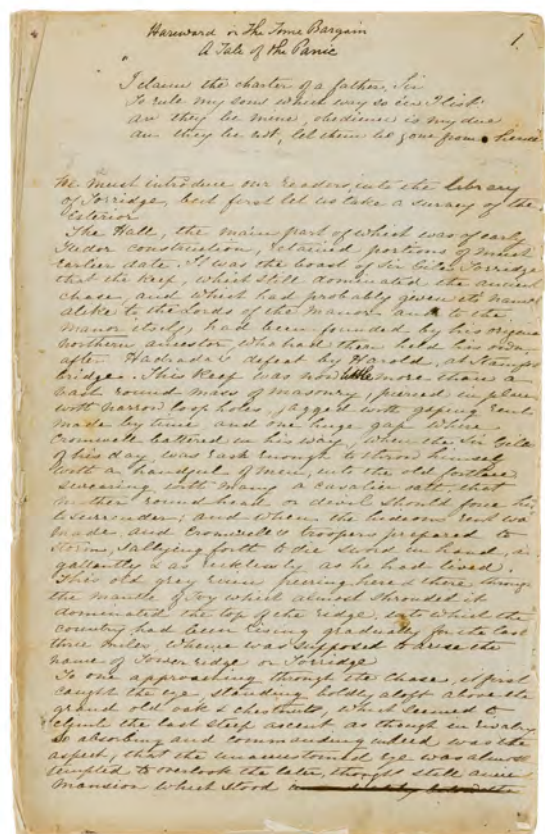 Hareward or The Time Bargain
A Tale of the Panic
1
I claim the charter of a father, Sir
To rule my sons which way so e'er I list
are they be mine, obedience is my due
an they be not, let them be gone from hence
We must introduce our readers, into the Library
of Torridge, but first let us take a survey of the
exterior
The Hall, the main part of which was of early
Tudor construction, retained portions of much
earlier date. It was the boast of Sir Giles Torridge
that the Keep, which still dominated the ancient
chase, and which had probably given its name
alike to the Lords of the Manor and to the
Manor itself, had been founded by his
northern ancestor, who had there held his own
after Hadrada's defeat by Harold, at
bridge. This Keep was now little more than a
vast round mass of masonry, pierced in places
with narrow loop holes, jagged with gaping rents
made by time and one huge gap where
Cromwell battered in his way, when the Sir Giles
of his day, was rash enough to throw himself
with a handful of men, into the old fortress
swearing, with many a cavalier oath, that
neither round head or devil should force him
to surrender; and when the hideous rent was
made, and Cromwell's troopers prepared to
storm, sallying forth to die sword in hand, as
gallantly & as recklessly as he had lived.
This old grey ruin peering here & there through
the mantle of ivy which almost shrouded it
dominated the top of the ridge, into which the
country had been rising gradually for the last
three miles, whence was supposed to arise the
name of Tower ridge or Torridge
To one approaching through the Chase, it first
caught the eye, standing boldly aloft above the
grand old oaks & chestnuts, which seemed to
climb the last steep ascent as though in rivalry
So absorbing and commanding indeed was the
aspect, that the unaccustomed eye was almost
tempted to overlook the later, though still
mansion which stood